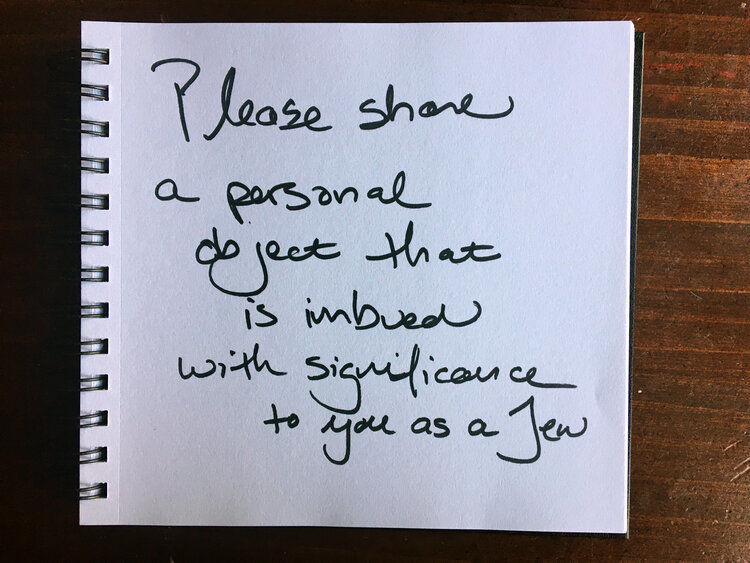 Please share
a personal
object that
is imbued
with significance
to you as a Jew